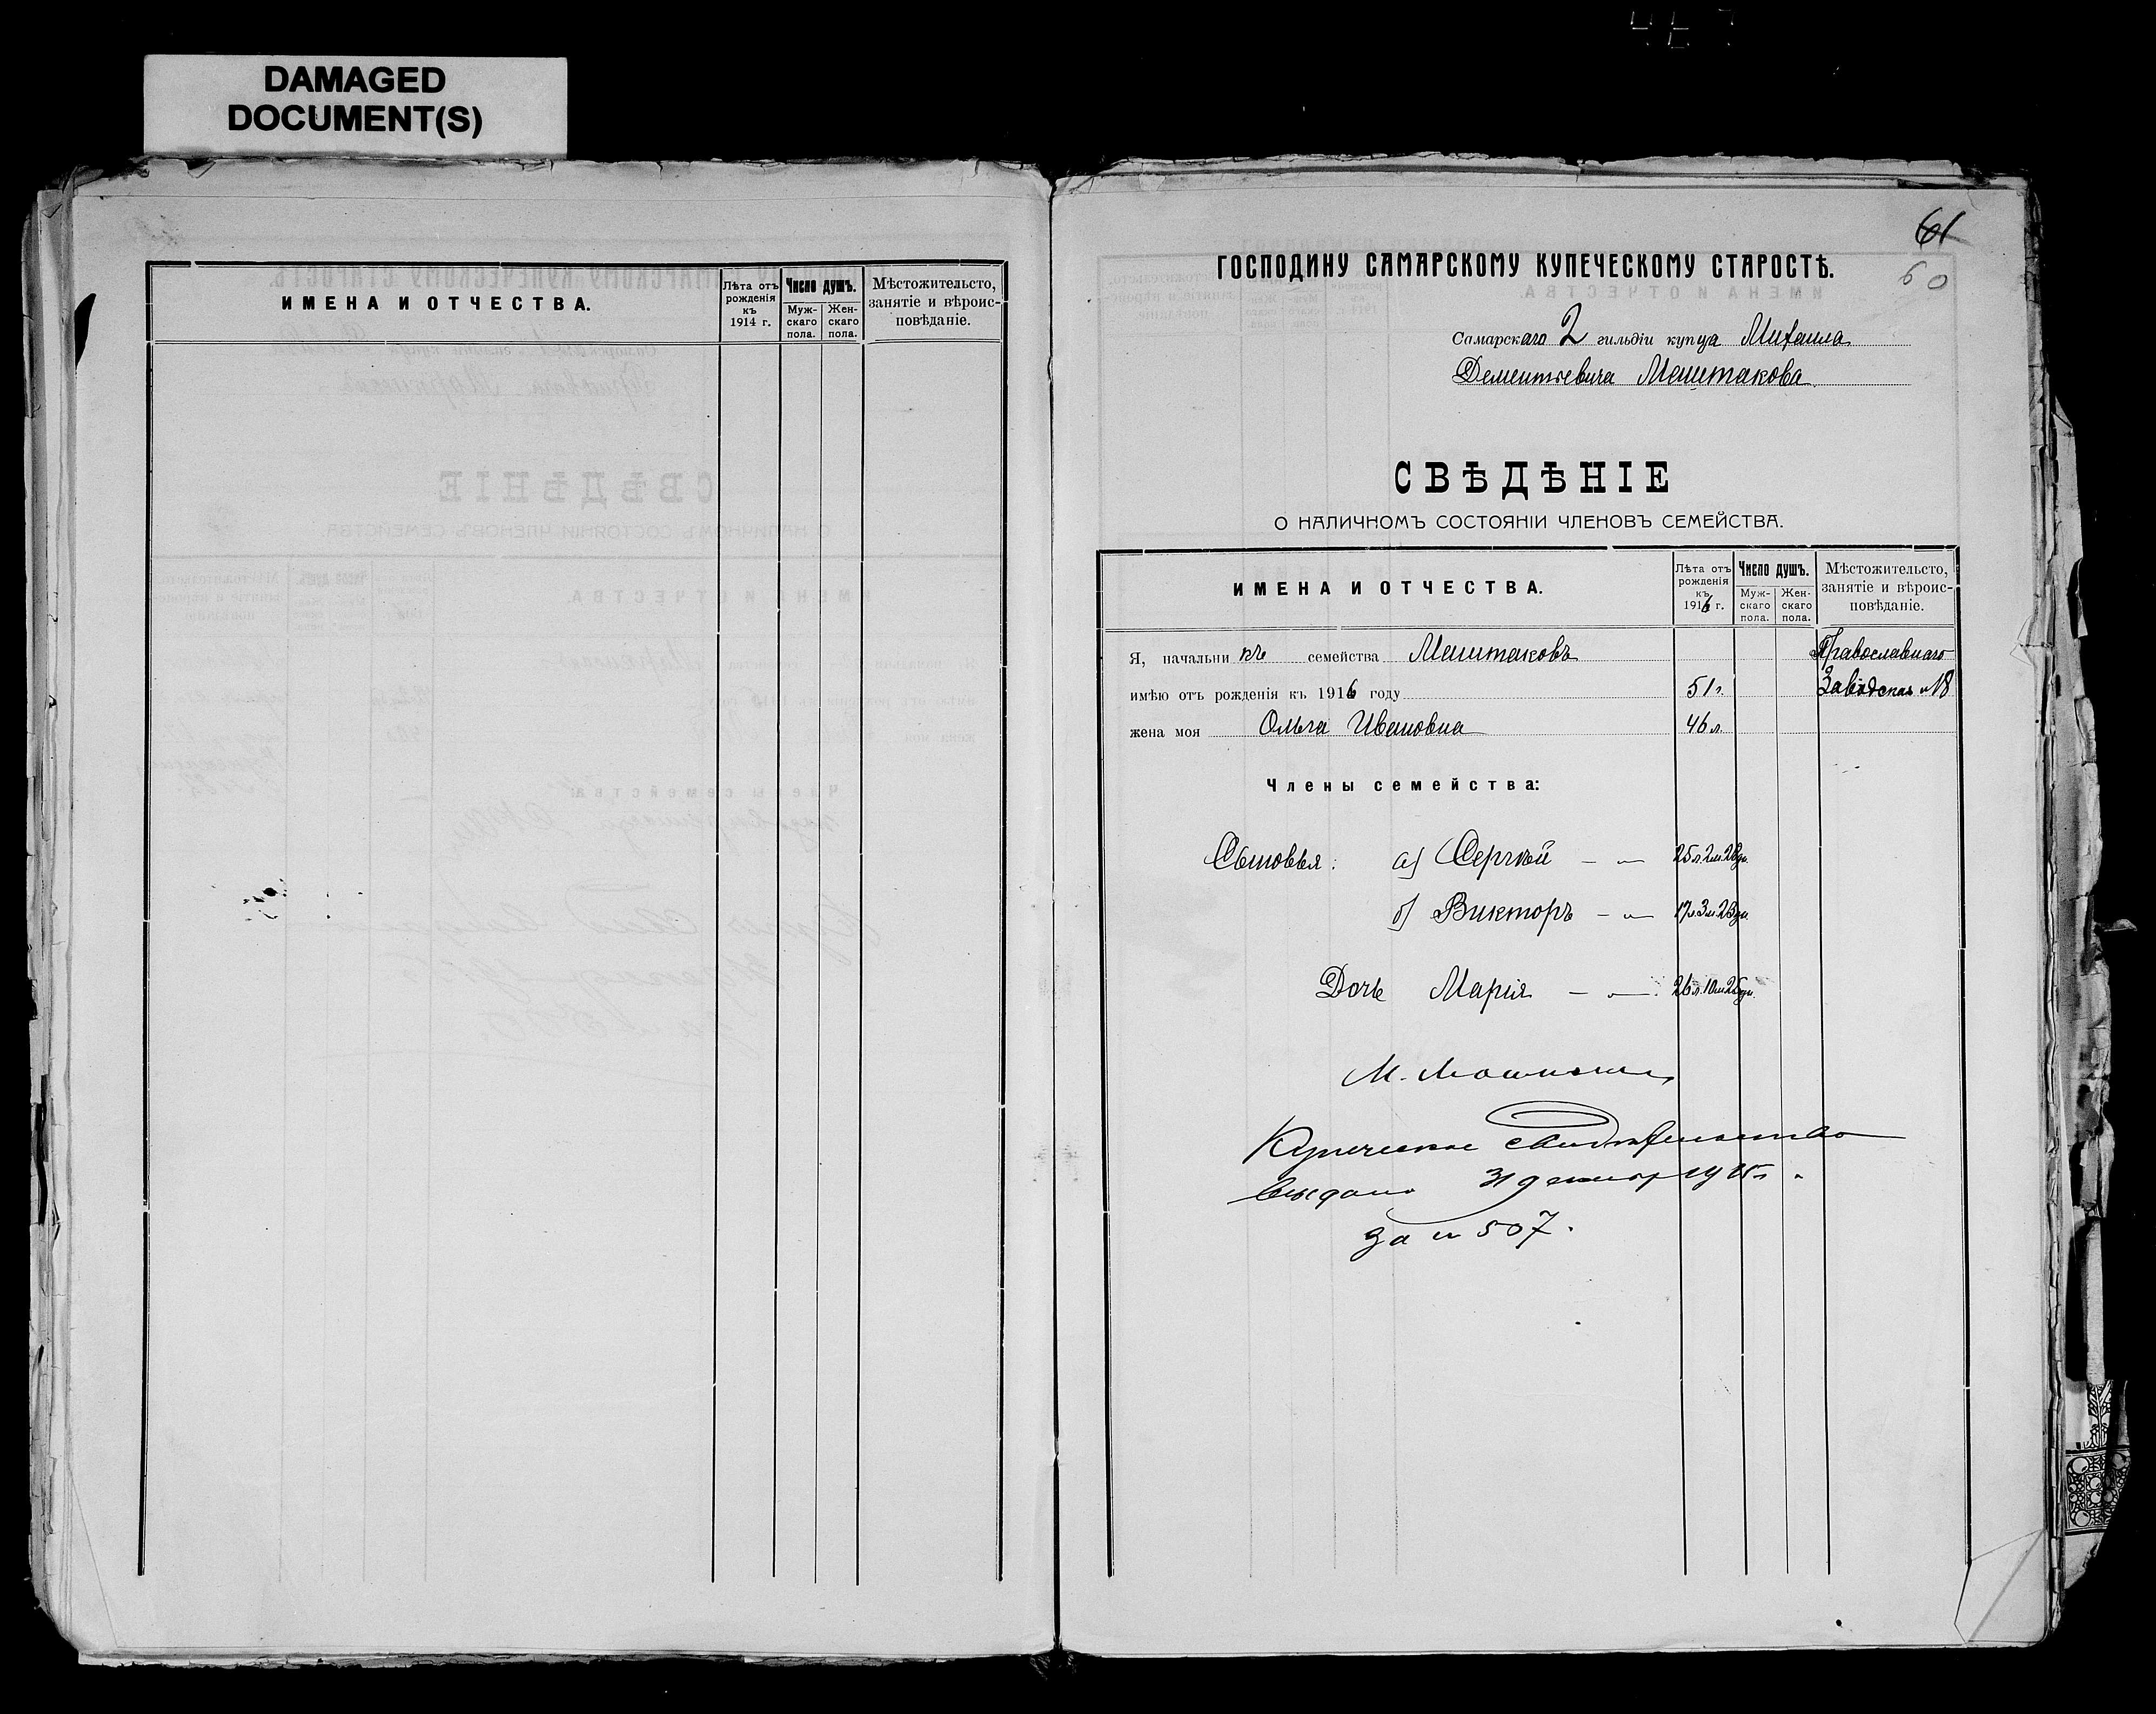 DAMAGED
DOCUMENT(S)
ИМЕНА И ОТЧЕСТВА.
Лѣта отъ рожденія къ 1914 г.
Число душъ.
Муж-скаго пола.
Жен-скаго пола.
Мѣстожительсто, занятіе и вѣроис-повѣданіе.
61
60
ГОСПОДИНУ САМАРСКОМУ КУПЕЧЕСКОМУ СТАРОСТѢ.
Самарскаго 2 гильдіи купца Михаила
Дементьевича Маштакова
СВѢДѢНІЕ
О НАЛИЧНОМЪ СОСТОЯНІИ ЧЛЕНОВЪ СЕМЕЙСТВА.
ИМЕНА И ОТЧЕСТВА.
Лѣта отъ рожденія къ 1916 г.
Число душъ.
Муж-скаго пола.
Жен-скаго пола.
Мѣстожительсто, занятіе и вѣроис-повѣданіе.
Я, начальникъ семейства Маштаковъ Православнаго
имѣю отъ рожденія къ 1916 году 51 г. Заводская №18
жена моя Ольга Ивановна 46 л.
Члены семейства:
Сыновья: а) Сергѣй — „ — 25 л. 2 м. 28 дн.
б) Викторъ — „ — 17 л. 3 м. 23 дн.
Дочь Марія — „ — 26 л. 10 м. 25 дн.
М. Маштаковъ
Купеческое свидѣтельство
выдано 31 декабр 1915 г.
за № 507.